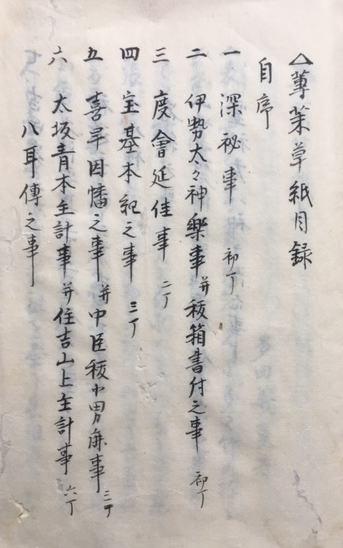 △蓴菜草紙目録
自序
一 深秘事 初丁
二 伊勢太々神樂事 并祓箱書付之事 初丁
三 度會延佳事 二丁
四 宝基本紀之事 三丁
五 喜早因幡之事 并中臣祓小男鹿事 三丁
六 大坂青木主計事 并住吉山上主計事 六丁
八耳傳之事